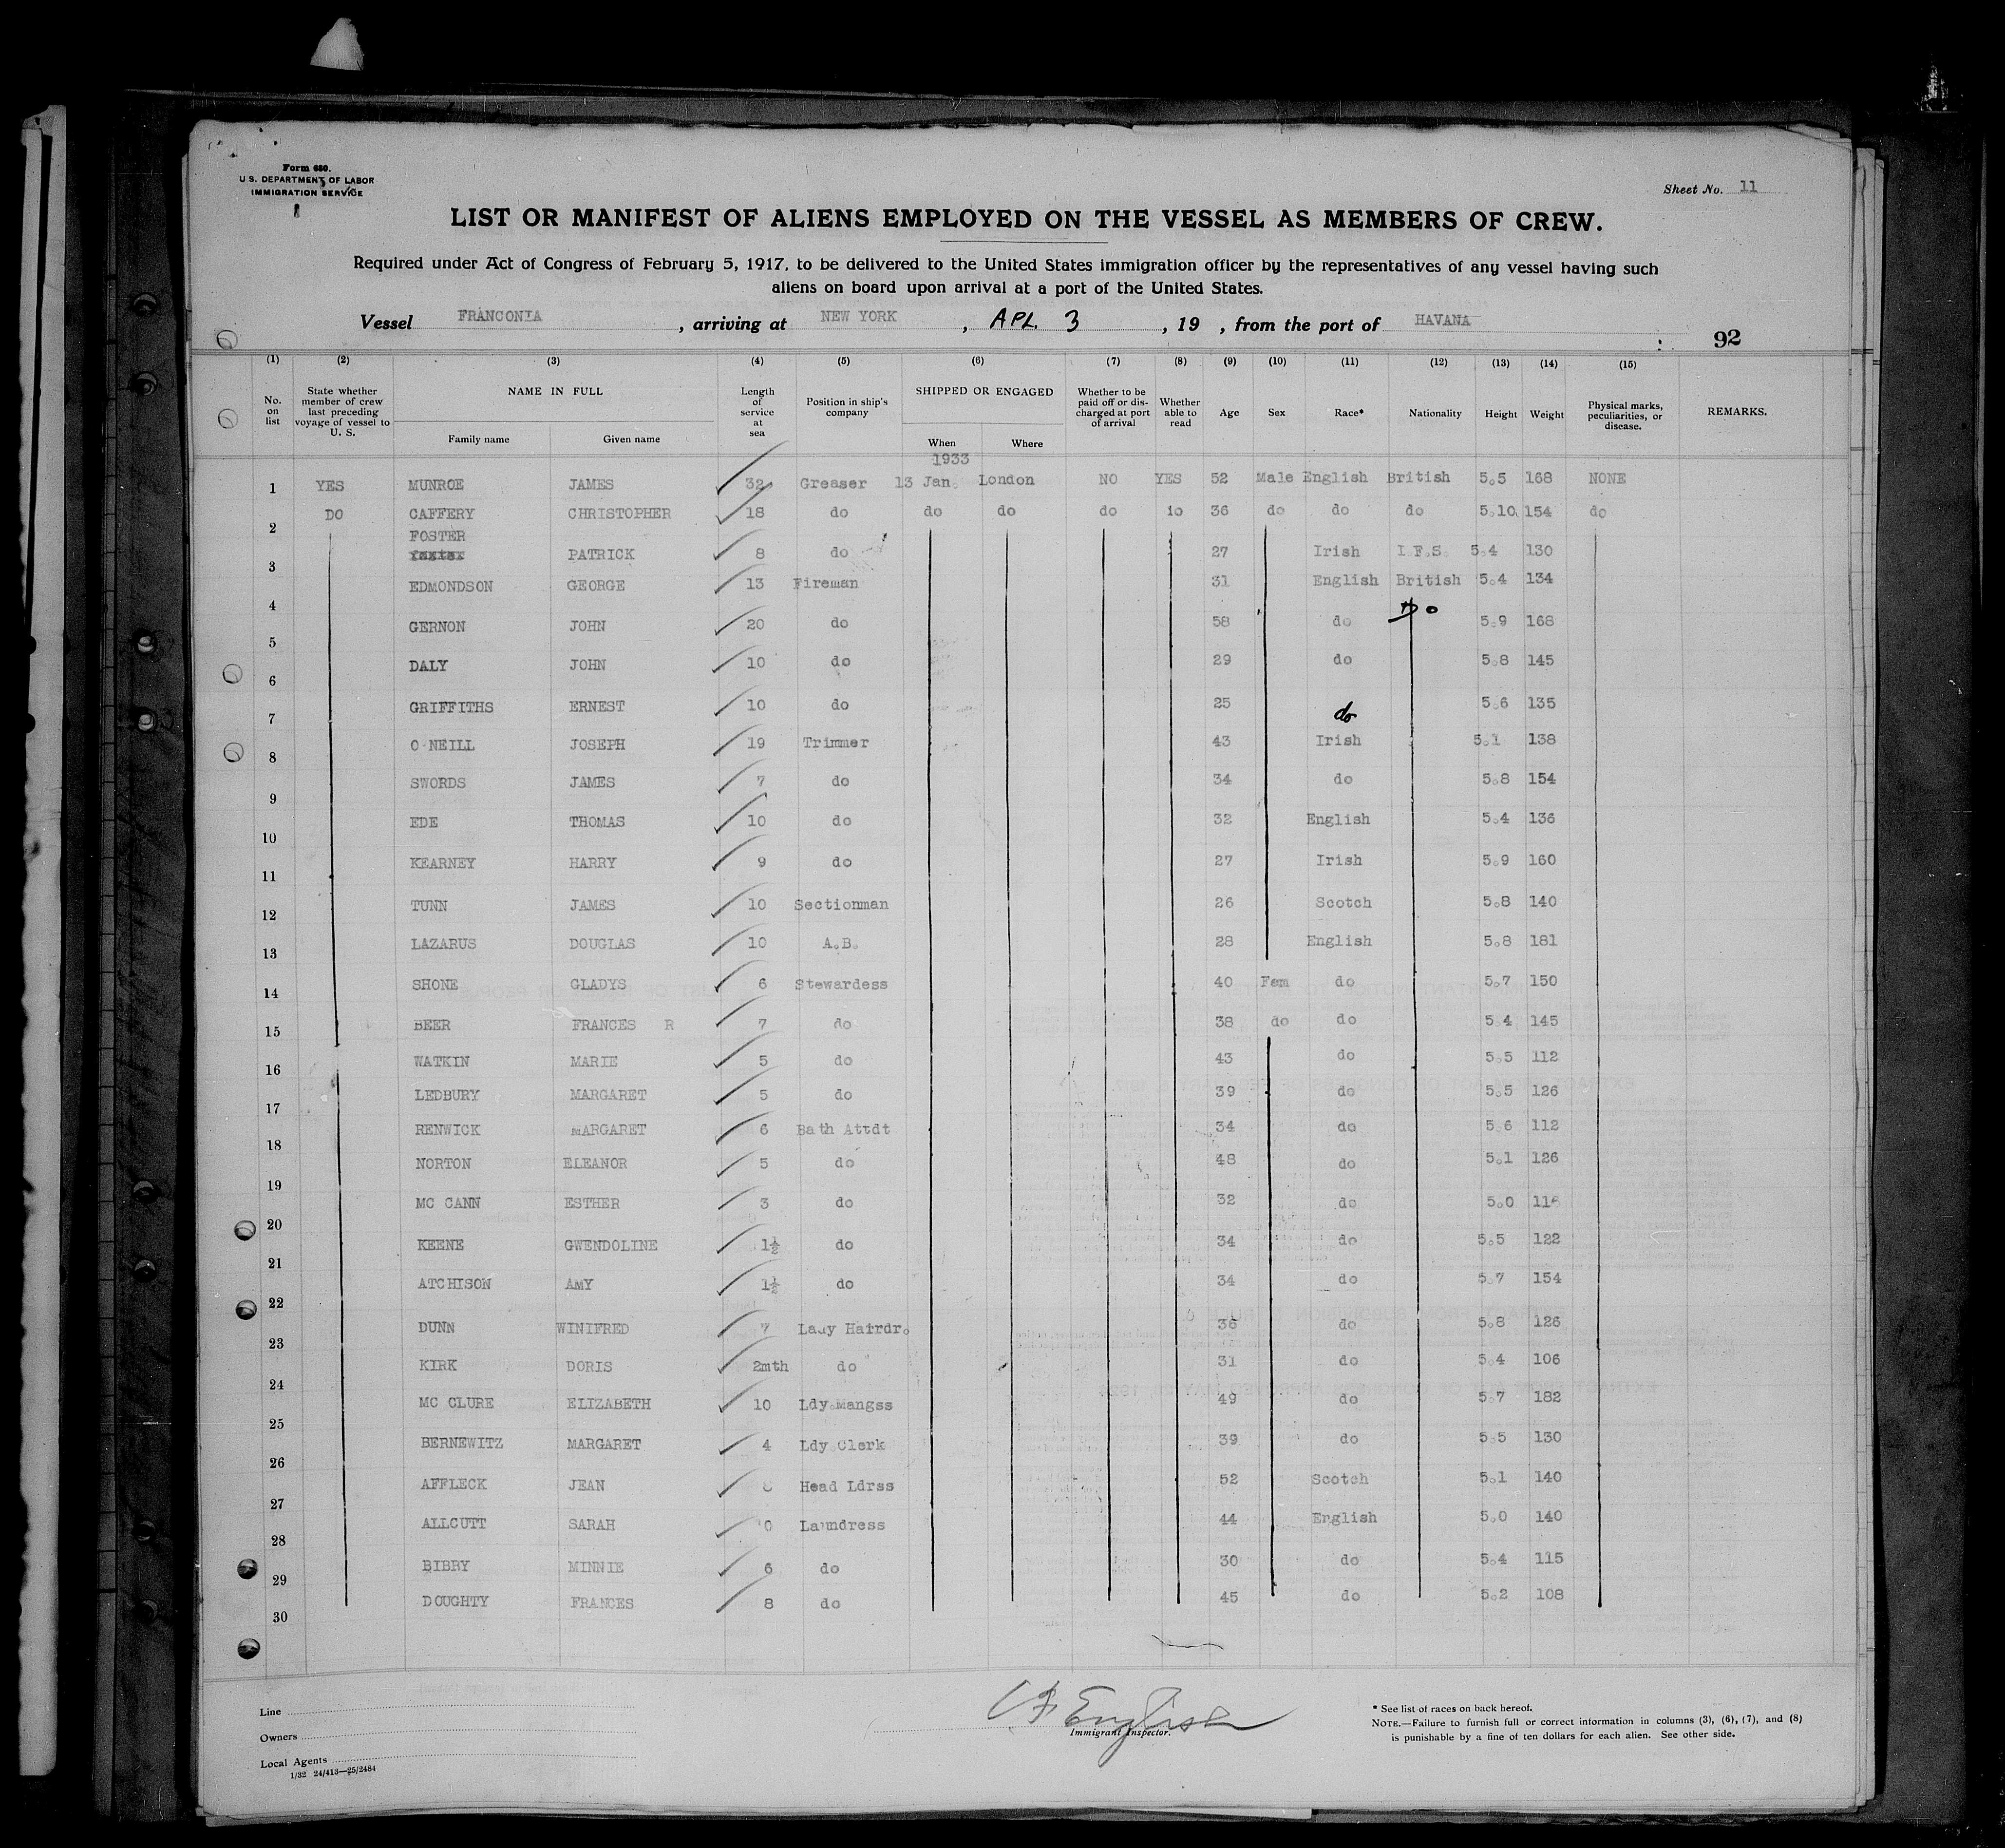 Form 680.
U.S. DEPARTMENT OF LABOR
IMMIGRATION SERVICE
Sheet No. 11
LIST OR MANIFEST OF ALIENS EMPLOYED ON THE VESSEL AS MEMBERS OF CREW.
Required under Act of Congress of February 5, 1917, to be delivered to the United States immigration officer by the representatives of any vessel having such
aliens on board upon arrival at a port of the United States.
Vessel FRANCONIA, arriving at NEW YORK, APL. 3, 19 , from the port of HAVANA
92
(1) (2) (3) (4) (5) (6) (7) (8) (9) (10) (11) (12) (13) (14) (15)
No. on list State whether member of crew last preceding voyage of vessel to U. S. NAME IN FULL Length of service at sea Position in ship's company SHIPPED OR ENGAGED Whether to be paid off or discharged at port of arrival Whether able to read Age Sex Race* Nationality Height Weight Physical marks, peculiarities, or disease. REMARKS.
Family name Given name When Where
1933
1 YES MUNROE JAMES 32 Greaser 13 Jan. London NO YES 52 Male English British 5.5 168 NONE
2 DO CAFFERY CHRISTOPHER 18 do do do do do 36 do do do 5.10 154 do
3 FOSTER PATRICK 8 do 27 Irish I.F.S. 5.4 130
4 EDMONDSON GEORGE 13 Fireman 31 English British 5.4 134
5 GERNON JOHN 20 do 58 do Do 5.9 168
6 DALY JOHN 10 do 29 do 5.8 145
7 GRIFFITHS ERNEST 10 do 25 do 5.6 135
8 O'NEILL JOSEPH 19 Trimmer 43 Irish 5.1 138
9 SWORDS JAMES 7 do 34 do 5.8 154
10 EDE THOMAS 10 do 32 English 5.4 136
11 KEARNEY HARRY 9 do 27 Irish 5.9 160
12 TUNN JAMES 10 Sectionman 26 Scotch 5.8 140
13 LAZARUS DOUGLAS 10 A.B. 28 English 5.8 181
14 SHONE GLADYS 6 Stewardess 40 Fem do 5.7 150
15 BEER FRANCES R 7 do 38 do do 5.4 145
16 WATKIN MARIE 5 do 43 do 5.5 112
17 LEDBURY MARGARET 5 do 39 do 5.5 126
18 RENWICK MARGARET 6 Bath Attdt 34 do 5.6 112
19 NORTON ELEANOR 5 do 48 do 5.1 126
20 MC CANN ESTHER 3 do 32 do 5.0
21 KEENE GWENDOLINE 1½ do 34 do 5.5 122
22 ATCHISON AMY 1½ do 34 do 5.7 154
23 DUNN WINIFRED 7 Lady Hairdr. 36 do 5.8 126
24 KIRK DORIS 2mth do 31 do 5.4 106
25 MC CLURE ELIZABETH 10 Ldy.Mangss 49 do 5.7 182
26 BERNEWITZ MARGARET 4 Ldy.Clerk 39 do 5.5 130
27 AFFLECK JEAN Head Ldrss 52 Scotch 5.1 140
28 ALLCUTT SARAH Laundress 44 English 5.0 140
29 BIBRY MINNIE 6 do 30 do 5.4 115
30 DOUGHTY FRANCES 8 do 45 do 5.2 108
Line
Owners
Local Agents
1/32 24/413—25/2484
English
Immigrant Inspector.
* See list of races on back hereof.
NOTE.—Failure to furnish full or correct information in columns (3), (6), (7), and (8)
is punishable by a fine of ten dollars for each alien. See other side.